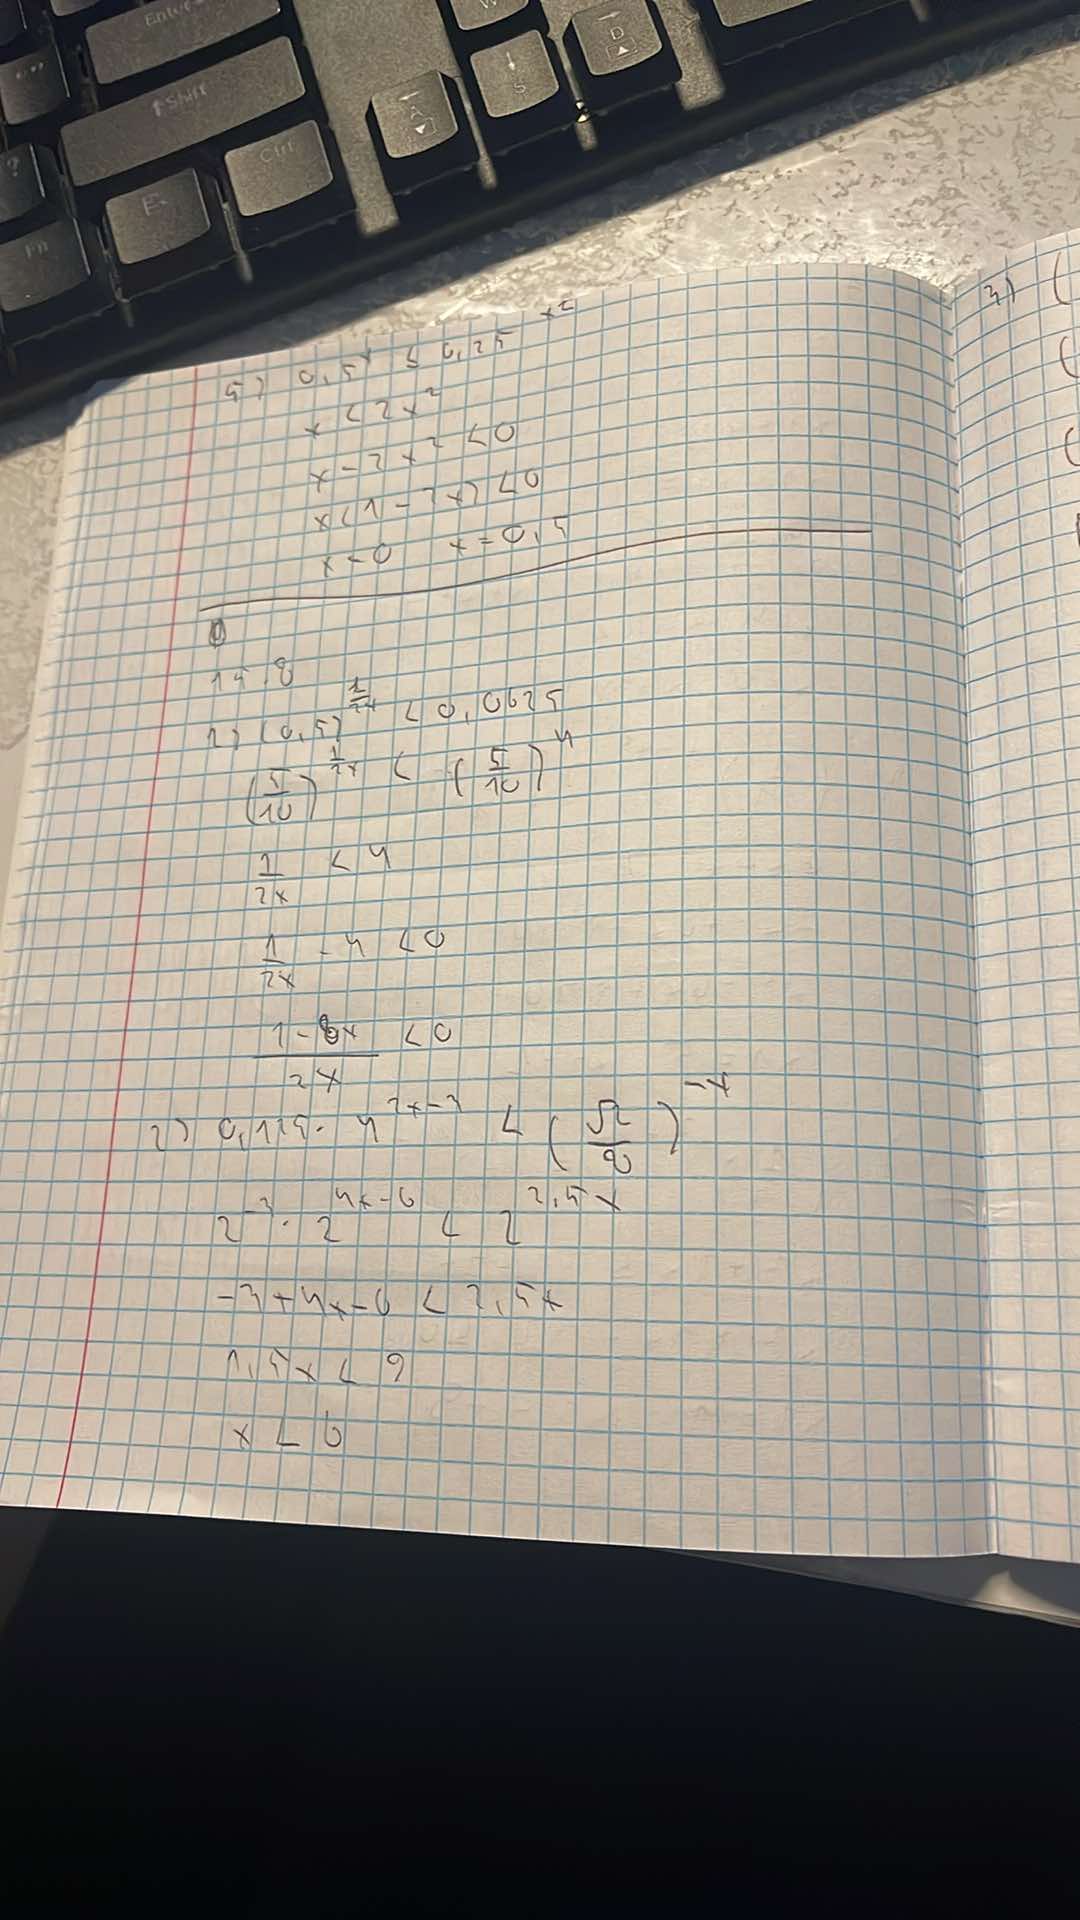 Enter
W
D
↑Shift
↓
S
A
?
Ctrl
E
Fn
3) (
5) 0,5^x ≤ 0,25^{x^2}
x < 2x^2
x - 2x^2 < 0
x(1 - 2x) < 0
x = 0 x = 0,5
15.8
1) (0,5)^{\frac{1}{2x}} < 0,0625
(\frac{5}{10})^{\frac{1}{2x}} < (\frac{5}{10})^4
\frac{1}{2x} < 4
\frac{1}{2x} - 4 < 0
\frac{1-8x}{2x} < 0
2) 0,125 · 4^{2x-3} < (\frac{√2}{8})^{-x}
2^{-3} · 2^{4x-6} < 2^{2,5x}
-3+4x-6 < 2,5x
1,5x < 9
x < 6